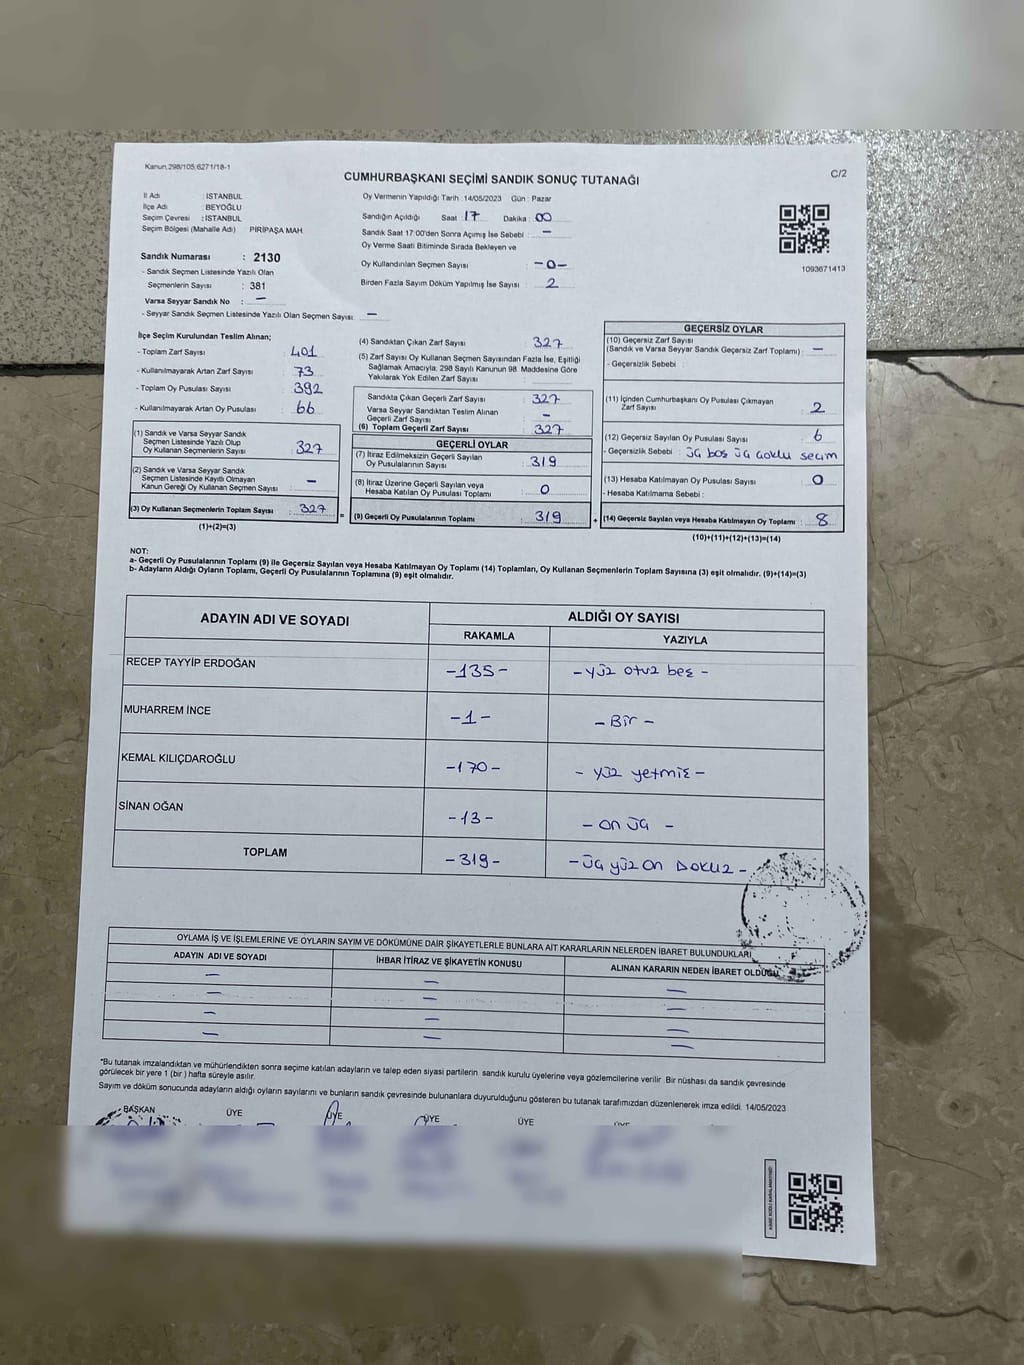 Kanun.298/105,6271/18-1
CUMHURBAŞKANI SEÇİMİ SANDIK SONUÇ TUTANAĞI
C/2
İl Adı : İSTANBUL
İlçe Adı : BEYOĞLU
Seçim Çevresi : İSTANBUL
Seçim Bölgesi (Mahalle Adı) PİRİPAŞA MAH.
Sandık Numarası : 2130
- Sandık Seçmen Listesinde Yazılı Olan
Seçmenlerin Sayısı : 381
Varsa Seyyar Sandık No : —
- Seyyar Sandık Seçmen Listesinde Yazılı Olan Seçmen Sayısı: —
Oy Vermenin Yapıldığı Tarih : 14/05/2023 Gün : Pazar
Sandığın Açıldığı Saat 17 Dakika : 00
Sandık Saat 17:00'den Sonra Açımış İse Sebebi : —
Oy Verme Saati Bitiminde Sırada Bekleyen ve
Oy Kullandırılan Seçmen Sayısı : -0-
Birden Fazla Sayım Döküm Yapılmış İse Sayısı : 2
1093671413
İlçe Seçim Kurulundan Teslim Alınan;
- Toplam Zarf Sayısı : 401
- Kullanılmayarak Artan Zarf Sayısı : 73
- Toplam Oy Pusulası Sayısı : 392
- Kullanılmayarak Artan Oy Pusulası : 66
(1) Sandık ve Varsa Seyyar Sandık
Seçmen Listesinde Yazılı Olup
Oy Kullanan Seçmenlerin Sayısı : 327
(2) Sandık ve Varsa Seyyar Sandık
Seçmen Listesinde Kayıtlı Olmayan
Kanun Gereği Oy Kullanan Seçmen Sayısı : —
(3) Oy Kullanan Seçmenlerin Toplam Sayısı : 327
(1)+(2)=(3)
(4) Sandıktan Çıkan Zarf Sayısı : 327
(5) Zarf Sayısı Oy Kullanan Seçmen Sayısından Fazla İse, Eşitliği
Sağlamak Amacıyla, 298 Sayılı Kanunun 98. Maddesine Göre
Yakılarak Yok Edilen Zarf Sayısı :
Sandıkta Çıkan Geçerli Zarf Sayısı : 327
Varsa Seyyar Sandıktan Teslim Alınan
Geçerli Zarf Sayısı : —
(6) Toplam Geçerli Zarf Sayısı : 327
GEÇERLİ OYLAR
(7) İtiraz Edilmeksizin Geçerli Sayılan
Oy Pusulalarının Sayısı : 319
(8) İtiraz Üzerine Geçerli Sayılan veya
Hesaba Katılan Oy Pusulası Toplamı : 0
(9) Geçerli Oy Pusulalarının Toplamı : 319
GEÇERSİZ OYLAR
(10) Geçersiz Zarf Sayısı
(Sandık ve Varsa Seyyar Sandık Geçersiz Zarf Toplamı) : —
- Geçersizlik Sebebi :
(11) İçinden Cumhurbaşkanı Oy Pusulası Çıkmayan
Zarf Sayısı : 2
(12) Geçersiz Sayılan Oy Pusulası Sayısı : 6
- Geçersizlik Sebebi : üç boş üç çoklu seçim
(13) Hesaba Katılmayan Oy Pusulası Sayısı : 0
- Hesaba Katılmama Sebebi :
(14) Geçersiz Sayılan veya Hesaba Katılmayan Oy Toplamı : 8
(10)+(11)+(12)+(13)=(14)
NOT:
a- Geçerli Oy Pusulalarının Toplamı (9) ile Geçersiz Sayılan veya Hesaba Katılmayan Oy Toplamı (14) Toplamları, Oy Kullanan Seçmenlerin Toplam Sayısına (3) eşit olmalıdır. (9)+(14)=(3)
b- Adayların Aldığı Oyların Toplamı, Geçerli Oy Pusulalarının Toplamına (9) eşit olmalıdır.
ADAYIN ADI VE SOYADI ALDIĞI OY SAYISI
RAKAMLA YAZIYLA
RECEP TAYYİP ERDOĞAN -135- -yüz otuz beş-
MUHARREM İNCE -1- -Bir-
KEMAL KILIÇDAROĞLU -170- -yüz yetmiş-
SİNAN OĞAN -13- -on üç-
TOPLAM -319- -üç yüz on Dokuz-
OYLAMA İŞ VE İŞLEMLERİNE VE OYLARIN SAYIM VE DÖKÜMÜNE DAİR ŞİKAYETLERLE BUNLARA AİT KARARLARIN NELERDEN İBARET BULUNDUKLARI
ADAYIN ADI VE SOYADI İHBAR İTİRAZ VE ŞİKAYETİN KONUSU ALINAN KARARIN NEDEN İBARET OLDUĞU
— — —
— — —
— — —
— — —
*Bu tutanak imzalandıktan ve mühürlendikten sonra seçime katılan adayların ve talep eden siyasi partilerin sandık kurulu üyelerine veya gözlemcilerine verilir. Bir nüshası da sandık çevresinde
görülecek bir yere 1 (bir) hafta süreyle asılır.
Sayım ve döküm sonucunda adayların aldığı oyların sayılarını ve bunların sandık çevresinde bulunanlara duyurulduğunu gösteren bu tutanak tarafımızdan düzenlenerek imza edildi. 14/05/2023
BAŞKAN ÜYE ÜYE ÜYE ÜYE ÜYE